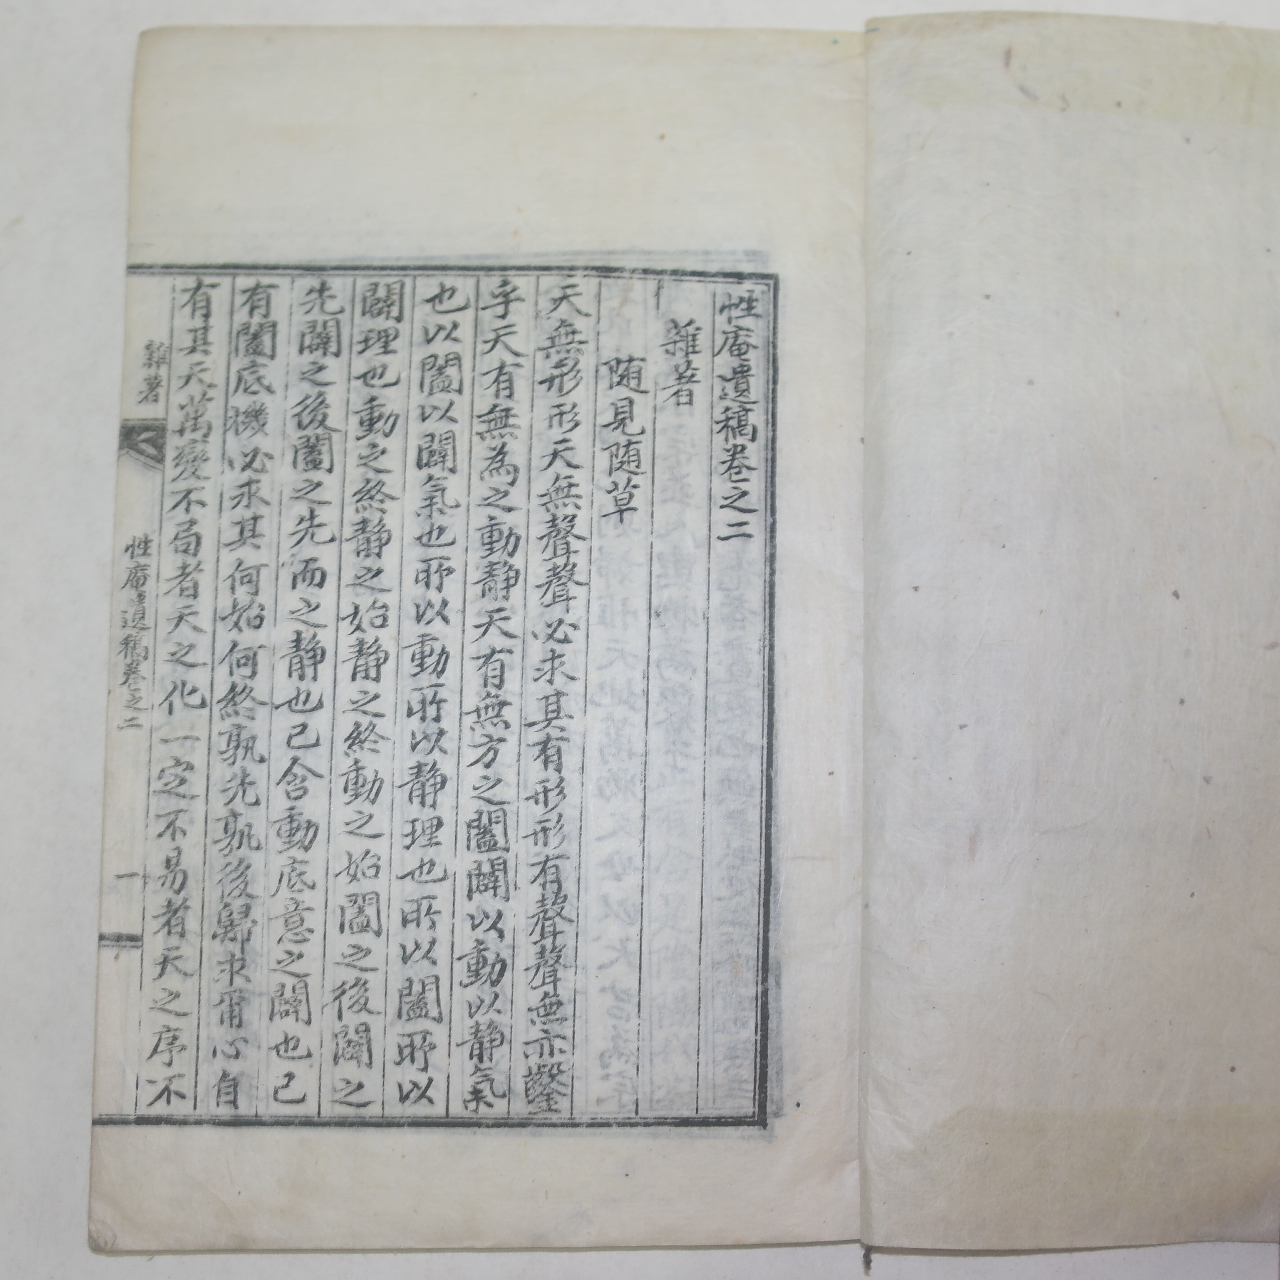 性庵遺稿卷之二
雜著
随見随草
天無形形天無聲聲必求其有形形有聲聲無亦鑿
乎天有無為之動靜天有無方之闔闢以動以靜氣
也以闔以闢氣也所以動所以靜理也所以闔所以
闢理也動之終靜之始靜之終動之始闔之後闢之
先闢之後闔之先而之靜也已含動底意之闢也已
有闔底機必求其何始何終孰先孰後歸求甭心自
有其天萬變不局者天之化一定不易者天之序不
雜著
性庵遺稿卷之二
一